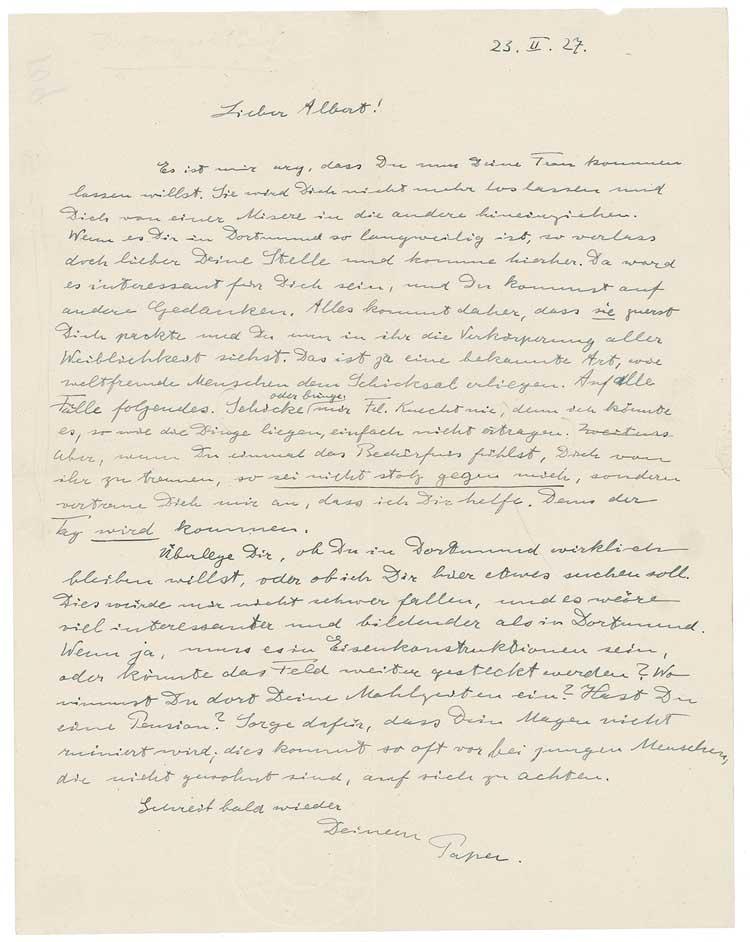 23. II. 27.
Lieber Albert!
Es ist mir arg, dass Du nun Deine Frau kommen
lassen willst. Sie wird Dich nicht mehr loslassen und
Dich von einer Misere in die andere hineinziehen.
Wenn es Dir in Dortmund so langweilig ist, so verlass
doch lieber Deine Stelle und komme hierher. Da ward
es interessant für Dich sein, und Du kommst auf
andere Gedanken. Alles kommt daher, dass sie zuerst
Dich packte und Du nun in ihr die Verkörperung aller
Weiblichkeit siehst. Das ist ja eine bekannte Art, wie
weltfremde Menschen dem Schicksal erliegen. Auf alle
Fälle folgendes. Schicke oder bringe mir Frl. Knecht nie, denn ich könnte
es, so wie die Dinge liegen, einfach nicht ertragen. Zweitens
Aber, wenn Du einmal das Bedürfnis fühlst, Dich von
ihr zu trennen, so sei nicht stolz gegen mich, sondern
vertraue Dich mir an, dass ich Dir helfe. Denn der
Tag wird kommen.
Überlege Dir, ob Du in Dortmund wirklich
bleiben willst, oder ob ich Dir hier etwas suchen soll.
Dies würde mir nicht schwer fallen, und es wäre
viel interessanter und bildender als in Dortmund.
Wenn ja, muss es in Eisenkonstruktionen sein,
oder könnte das Feld weiter gesteckt werden? Wo
nimmst Du dort Deine Mahlzeiten ein? Hast Du
eine Pension? Sorge dafür, dass Dein Magen nicht
ruiniert wird; dies kommt so oft vor bei jungen Menschen,
die nicht gewohnt sind, auf sich zu achten.
Schreib bald wieder
Deinem
Papa.